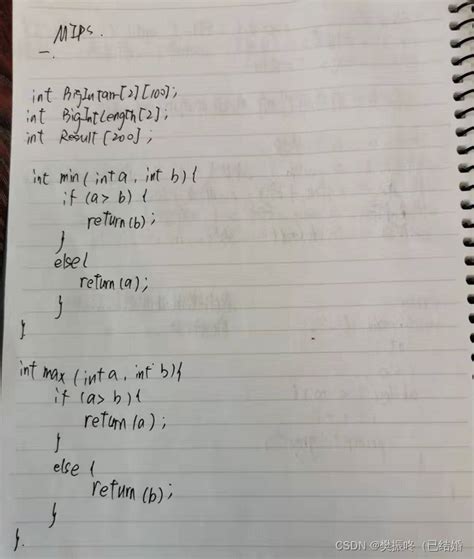 MIPS.
一.
int BigIntarr[2][100];
int BigIntLength[2];
int Result[200];
int min(int a, int b){
if (a> b) {
return(b);
}
else{
return(a);
}
}
int max (int a, int b){
if (a> b) {
return(a);
}
else {
return(b);
}
}.
CSDN @樊振咚（已结婚